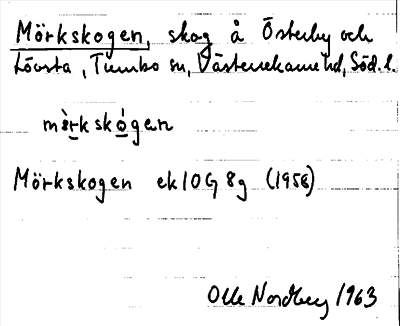 Mörkskogen, skog å Österby och
Lövsta, Tumbo sn, Västerrekarne hd, Söd. l.
mèrkskógen
Mörkskogen ek 10G 8g (1958)
Olle Nordberg 1963